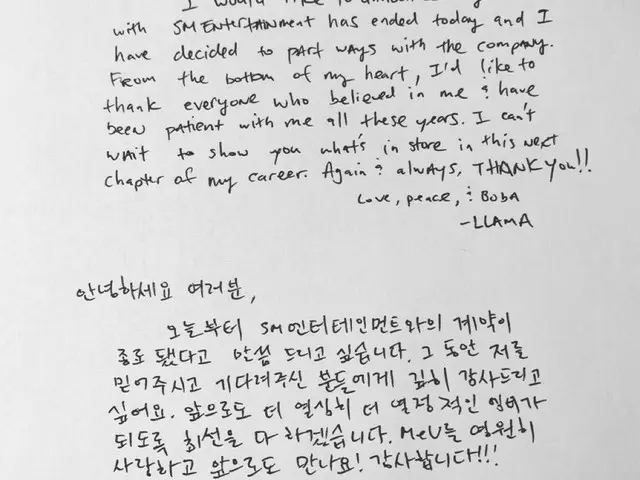 I would like to
with SM Entertainment has ended today and I
have decided to part ways with the company.
From the bottom of my heart, I'd like to
thank everyone who believed in me & have
been patient with me all these years. I can't
wait to show you what's in store in this next
chapter of my career. Again & always, THANK YOU!!
Love, peace, & BOBA
-LLAMA
안녕하세요 여러분,
오늘부터 SM엔터테인먼트와의 계약이
종료 됐다고 말씀 드리고 싶습니다. 그 동안 저를
믿어주시고 기다려주신 분들에게 깊히 감사드리고
싶어요. 앞으로도 더 열심히 더 열정적인 엠버가
되도록 최선을 다 하겠습니다. MeU들 영원히
사랑하고 앞으로도 만나요! 감사합니다!!!